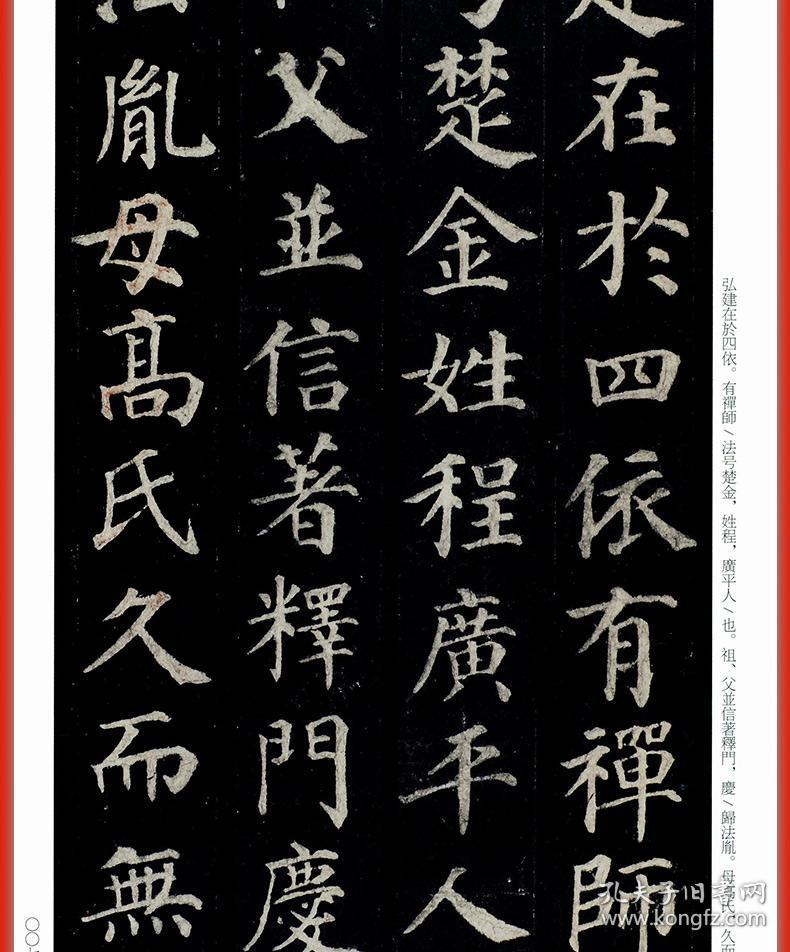 在於四依有禪師
楚金姓程廣平人
父並信著釋門慶
胤母高氏久而無
弘建在於四依。有禪師/法号楚金，姓程，廣平人/也。祖、父並信著釋門，慶/歸法胤。母高氏，久而
孔夫子旧书网
www.kongfz.com